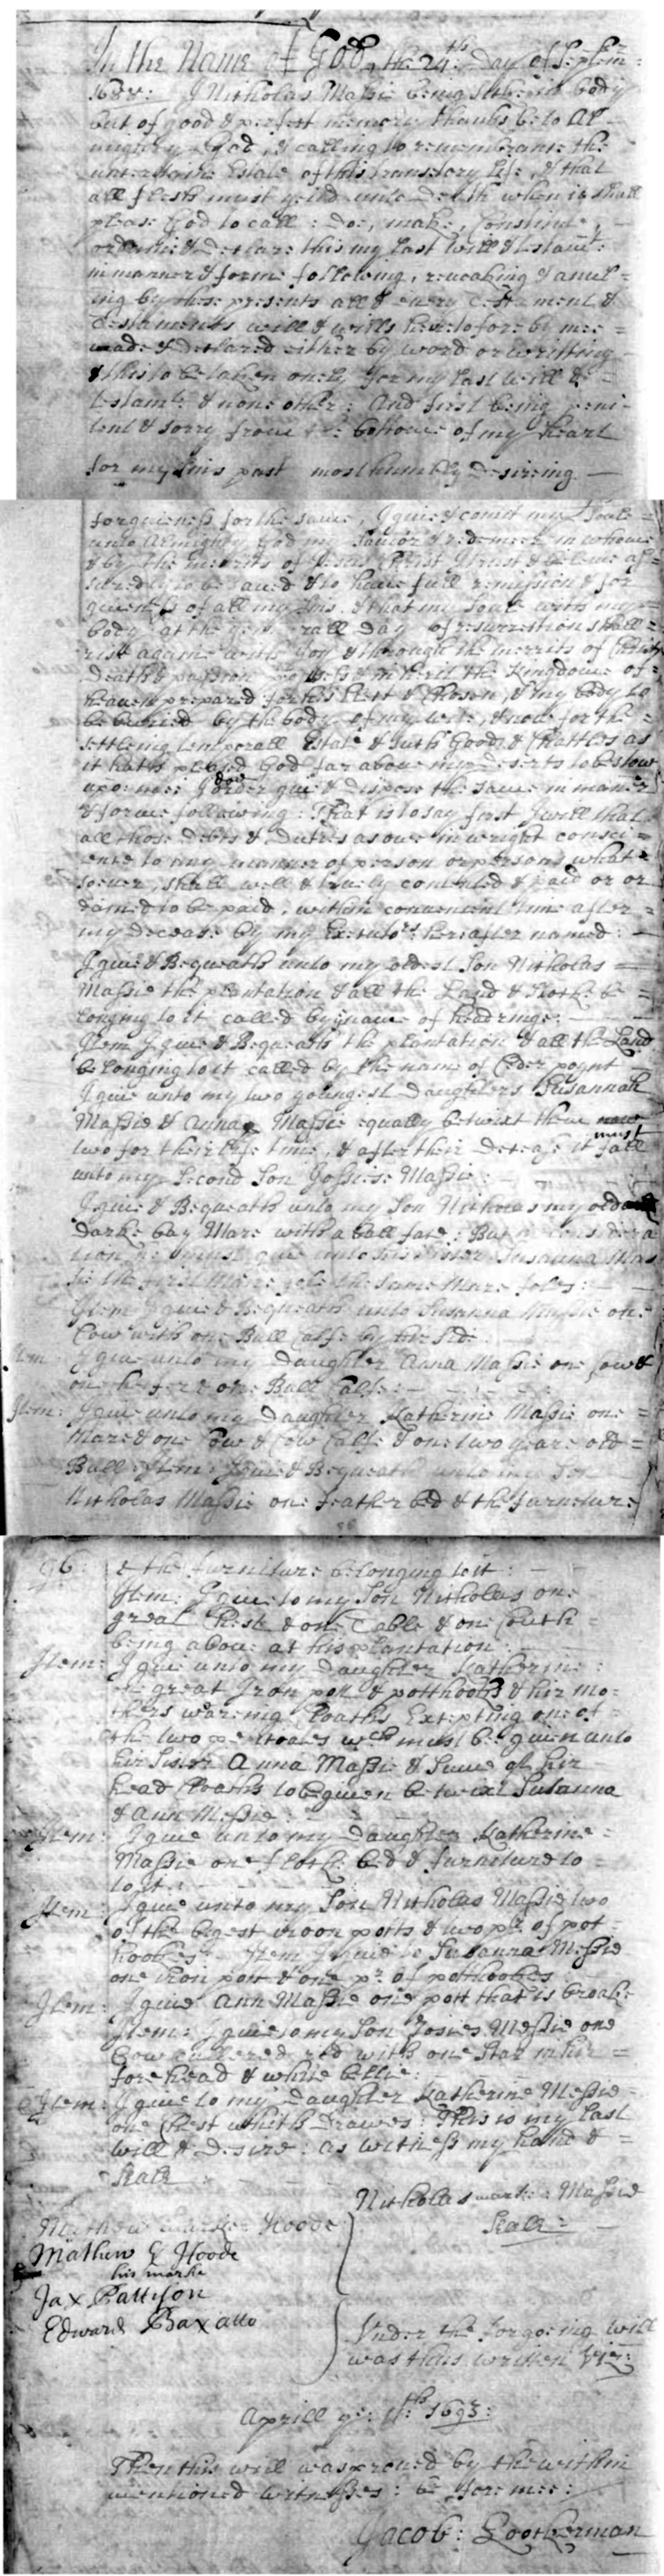 In the Name of God, the 24th: Day of Septem=
I Nicholas Massie being sick in body
but of good & perfect memory thanks be to Al=
mighty God, & calling to remembrance the
uncertaine Estate of this transetory Life, & that
all flesh must yeild unto Death when it shall
please God to call: doe, make, Constitute, —
ordaine & Declare this my last will & testamt:
in manner & forme following, reuoaking & anul=
ing by these presents all & euery testament &
testaments will & wills heretofore by mee =
made & Declared either by word or writting
& this to be taken onely for my last will & =
testamt: & none other: And first being peni=
tent & sorry from the bottome of my heart
for my sins past most humbly Desireing —
forguieness for the same, I guie & comit my Soule =
unto Almighty God my Sauior & redemeer in whome
& by the merits of Jesus Christ I trust & beleiue as=
suredly to be saued & to haue full remission & for
guieness of all my sins, & that my Soule with my =
body at the generall Day of resurrection shall =
rise againe with Joy & through the merrits of Christs
Death & passion possess & inherit the Kingdome of =
heauen prepared for his Elect & Chosen, & my body to
be buried by the body of my wife, & now for the =
settleing temporall Estate & such Goods & Chattles as
it hath pleased God far aboue my Deserts to bestow
upon mee I doe order guie & dispose the same in manner
& forme following: That is to say first I will that
all those Debts & Duties as owe in wright consci=
ence to any manner of person or persons what=
soeuer, shall well & truely contented & paid or or
dained to be paid, within conuenient time after =
my Decease by my Executors hereafter named: —
I guie & Bequeath unto my oldest Son Nicholas =
Massie the plantation & all the Land & Stock be =
longing to it called by name of headringe: —
Item I guie & Bequeath the plantation & all the Land
belonging to it called by the name of Ceder poynt
I guie unto my two youngest Daughters Susannah
Massie & Anna Massie equally betwixt them now
two for their life time, & after their Decease it must fall
unto my Second Son Josiese Massie: —
I guie & Bequeath unto my Son Nicholas my old
Darke bay Mare with a ball face: But
he must guie unto his Sister Susanna Mas
sie the first Mare fole the same Mare foles: —
Item I guie & Bequeath unto Susanna Massie one
Cow with one Bull Calfe by her Side
Item I guie unto my Daughter Anna Massie one Cow &
one hefer & one Bull Calfe: —
Item: I guie unto my Daughter Katherine Massie one =
Mare & one Cow & Cow Calfe & one two yeare old =
Bull Item: I guie & Bequeath unto my Son
Nicholas Massie one feather bed & the furneture
96: & the furniture belonging to it: —
Item: I guie to my Son Nicholas one
great Chest & one Table & one Couch =
being aboue at his plantation: —
Item: I guie unto my Daughter Katherine:
one great Iron pott & potthookes & hir mo=
thers wareing Cloaths Excepting one of =
the two wch must be guien unto
hir Sister Anna Massie & Sume of hir
head Cloaths to be guien betwixt Susanna
& Ann Messie: —
Item: I guie unto my Daughter Katherine =
Massie one flock bed & furniture to
to it: —
Item: I guie unto my Son Nicholas Massie two
of the bigest iroon potts & two pr. of pot=
hookes — Item I guie to Susanna Messie
one iron pott & one pr. of pothookes
Item: I guie Ann Massie one pott that is broake
Item: I guie to my Son Josies Messie one
Cow cullered red with one Star in hir =
forehead & white bellie:
Item: I guie to my Daughter Katherine Messie =
one Chest which Drawes: This is my last
will & desire: as witness my hand & =
Seale
Nicholas marke: Massie
Seale =
Mathew marke Hoode
Mathew Hoode
his marke
Jax Pattison
Edward Baxatto
Under the forgoeing will
was thus written Viz:
Aprill ye: 11th: 1693:
Then this will was proued by the within
mentioned Witnesses: before mee:
Jacob: Lookerman